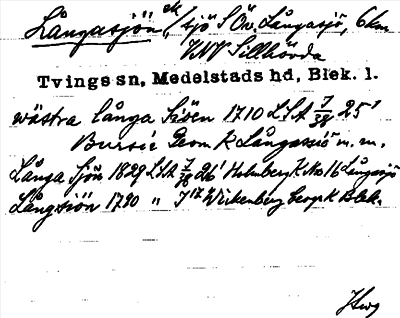 Långasjön ek, sjö S Öv. Långasjö, 6 km
VNV Tillhövda
Tvings sn, Medelstads hd, Blek. l.
wästra långa Siöen 1710 LSA J/38 25'
Bursie Geom K Långasiö m. m.
Långa Sjön 1829 LSA J/38 26' Holmberg K No 16 Långasjö
Långsiön 1790 " J 17 Wirkenberg Geogr K Blek.